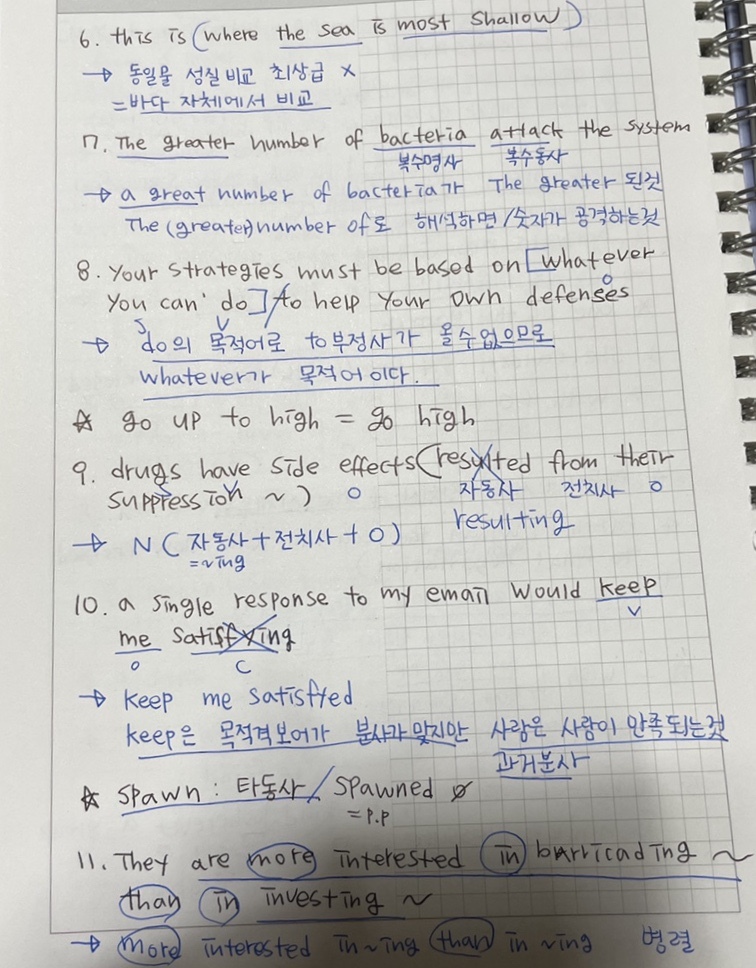 6. this is (where the sea is most shallow)
→ 동일물 성질 비교 최상급 x
= 바다 자체에서 비교
7. The greater number of bacteria attack the system
복수명사 복수동사
→ a great number of bacteria가 The greater 된것
The (greater) number of로 해석하면 / 숫자가 공격하는것
8. Your strategies must be based on [whatever
O
you can' do] / to help your own defenses
S V
→ do의 목적어로 to부정사가 올수없으므로
whatever가 목적어이다.
☆ go up to high = go high
9. drugs have side effects (resulted from their
S V O 자동사 전치사 O
suppression ~)
resulting
→ N ( 자동사 + 전치사 + O )
= ~ing
10. a single response to my email would keep
V
me satisfying
O C
→ keep me satisfied
keep은 목적격보어가 분사가 맞지만 사람은 사람이 만족되는것
과거분사
☆ spawn : 타동사 / spawned ∅
= p.p
11. They are more interested in barricading ~
than in investing ~
→ more interested in ~ing than in ~ing 병렬